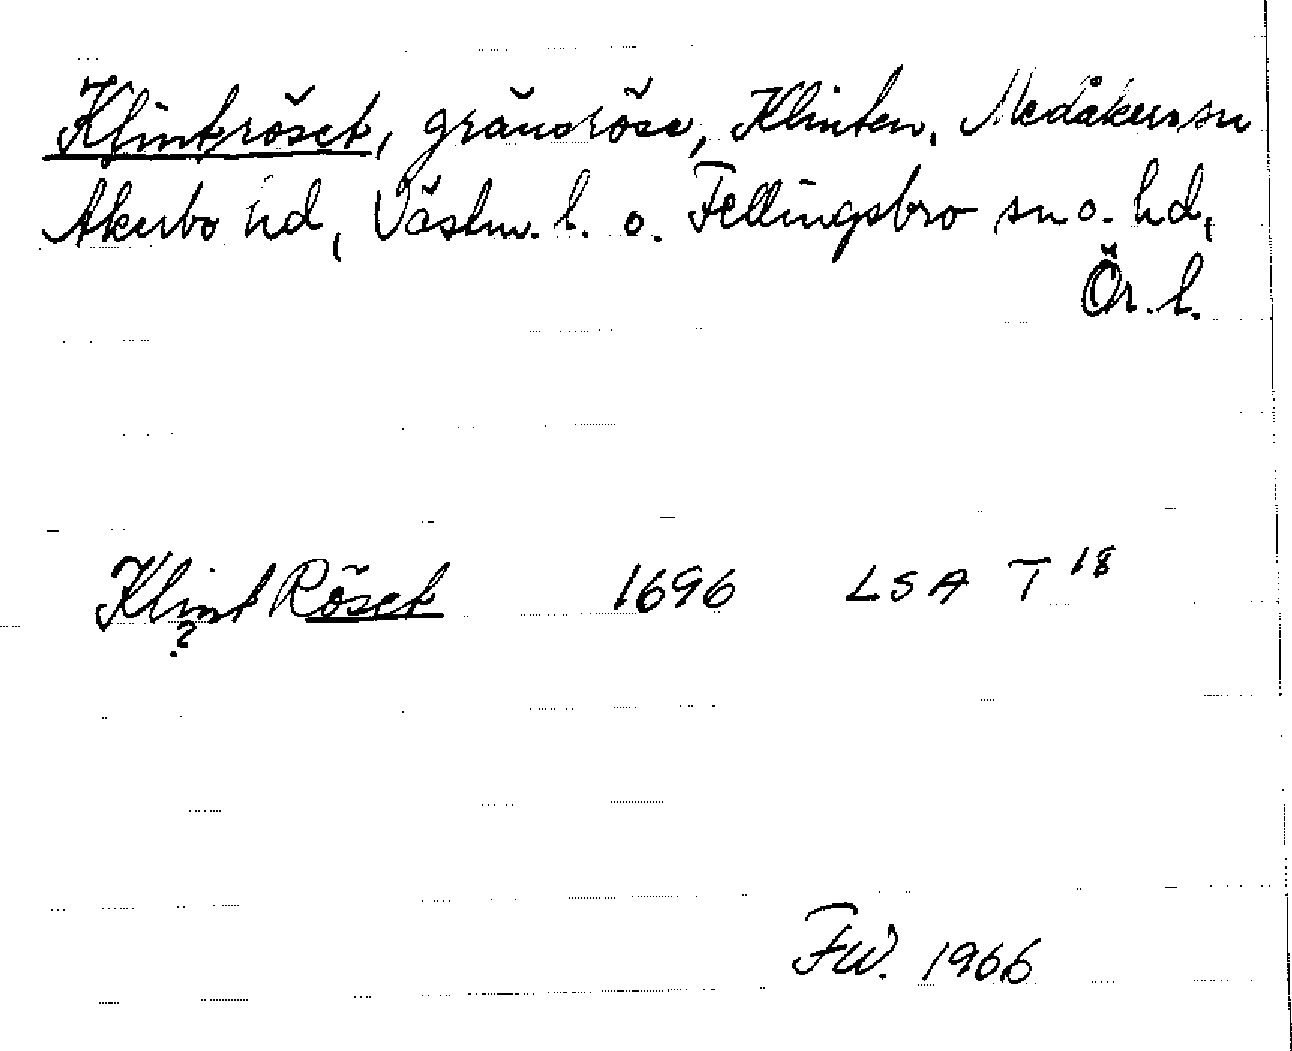 Klintröset, gränsröse, Klinten, Medåkers sn
Åkerbo hd, Västm. l. o. Fellingsbro sn o. hd,
Ör. l.
Klint Röset 1696 LSA T 18
?
FW. 1966